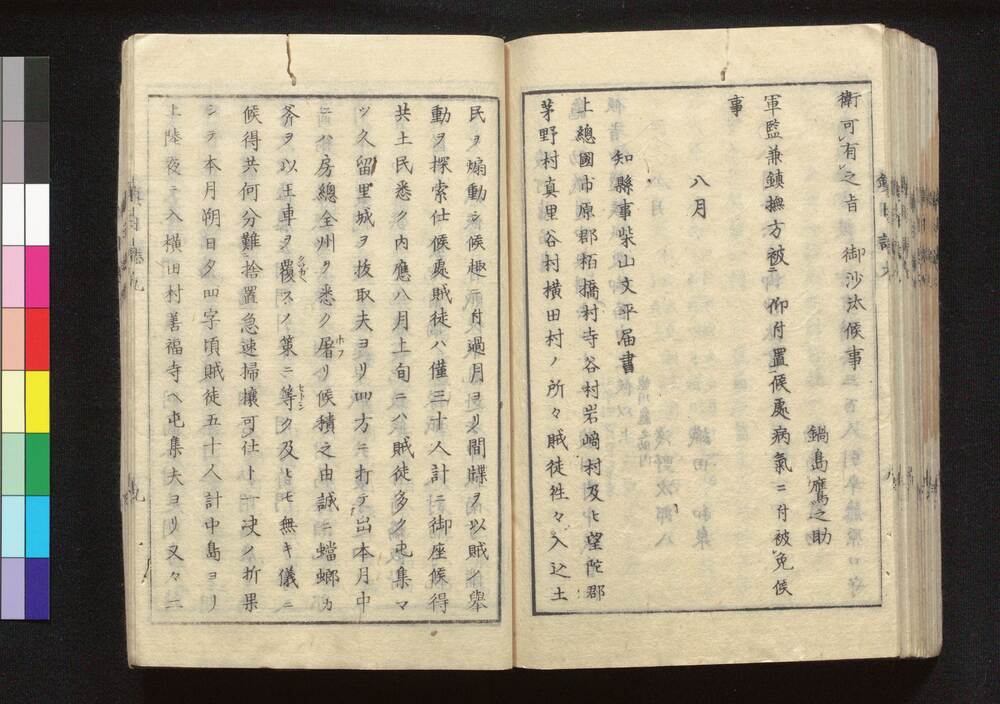 衛可有之旨 御沙汰候事
鍋島鷹之助
軍監兼鎮撫方被 仰付置候處病氣ニ付被免候
事
八月
知縣事柴山文平届書
上總國市原郡栢橋村寺谷村岩﨑村及ヒ望陀郡
茅野村真里谷村横田村ノ所々賊徒徃々入込土
民ヲ煽動シ候趣ニ付過月ヨリ間牒ヲ以賊ノ舉
動ヲ探索仕候處賊徒ハ僅三十人計ニ御座候得
共土民悉ク内應八月上旬ニハ賊徒多ク屯集マ
ツ久留里城ヲ抜取夫ヨリ四方ニ打テ出本月中
ニハ房總全州ヲ悉ク屠リ候積之由誠ニ蟷螂カ
斧ヲ以王車ヲ覆スノ策ニ等ク及ヒモ無キ儀ニ
候得共何分難捨置急速掃攘可仕ト一决ノ折果
シテ本月朔日夕四字頃賊徒五十人計中島ヨリ
上陸夜ニ入横田村善福寺ヘ屯集夫ヨリ又々二